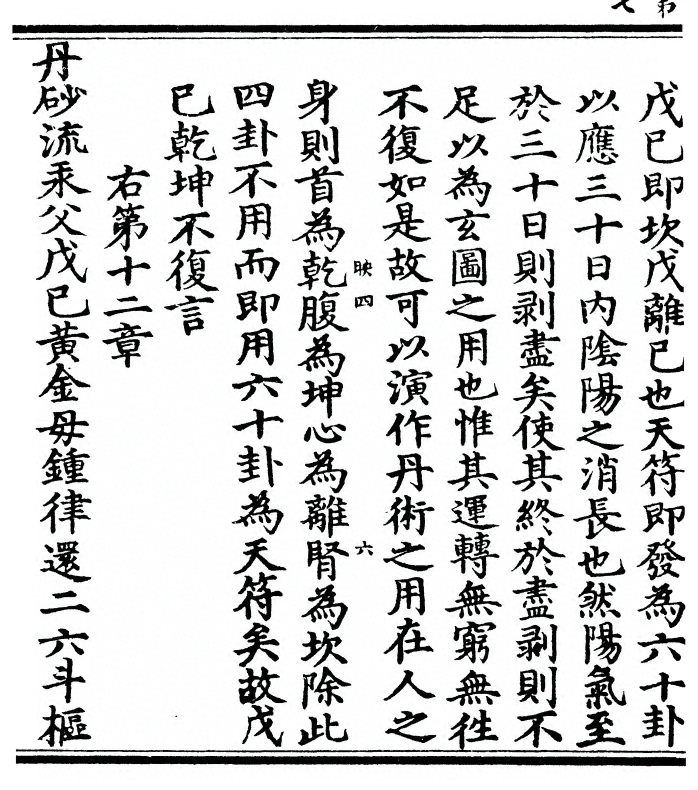 戊巳即坎戊離巳也天符即發為六十卦
以應三十日内陰陽之消長也然陽氣至
於三十日則剥盡矣使其終於盡剥則不
足以為玄圖之用也惟其運轉無窮無徃
不復如是故可以演作丹術之用在人之
映四
六
身則首為乾腹為坤心為離腎為坎除此
四卦不用而即用六十卦為天符矣故戊
巳乾坤不復言
右第十二章
丹砂流汞父戊巳黄金母鍾律還二六斗樞